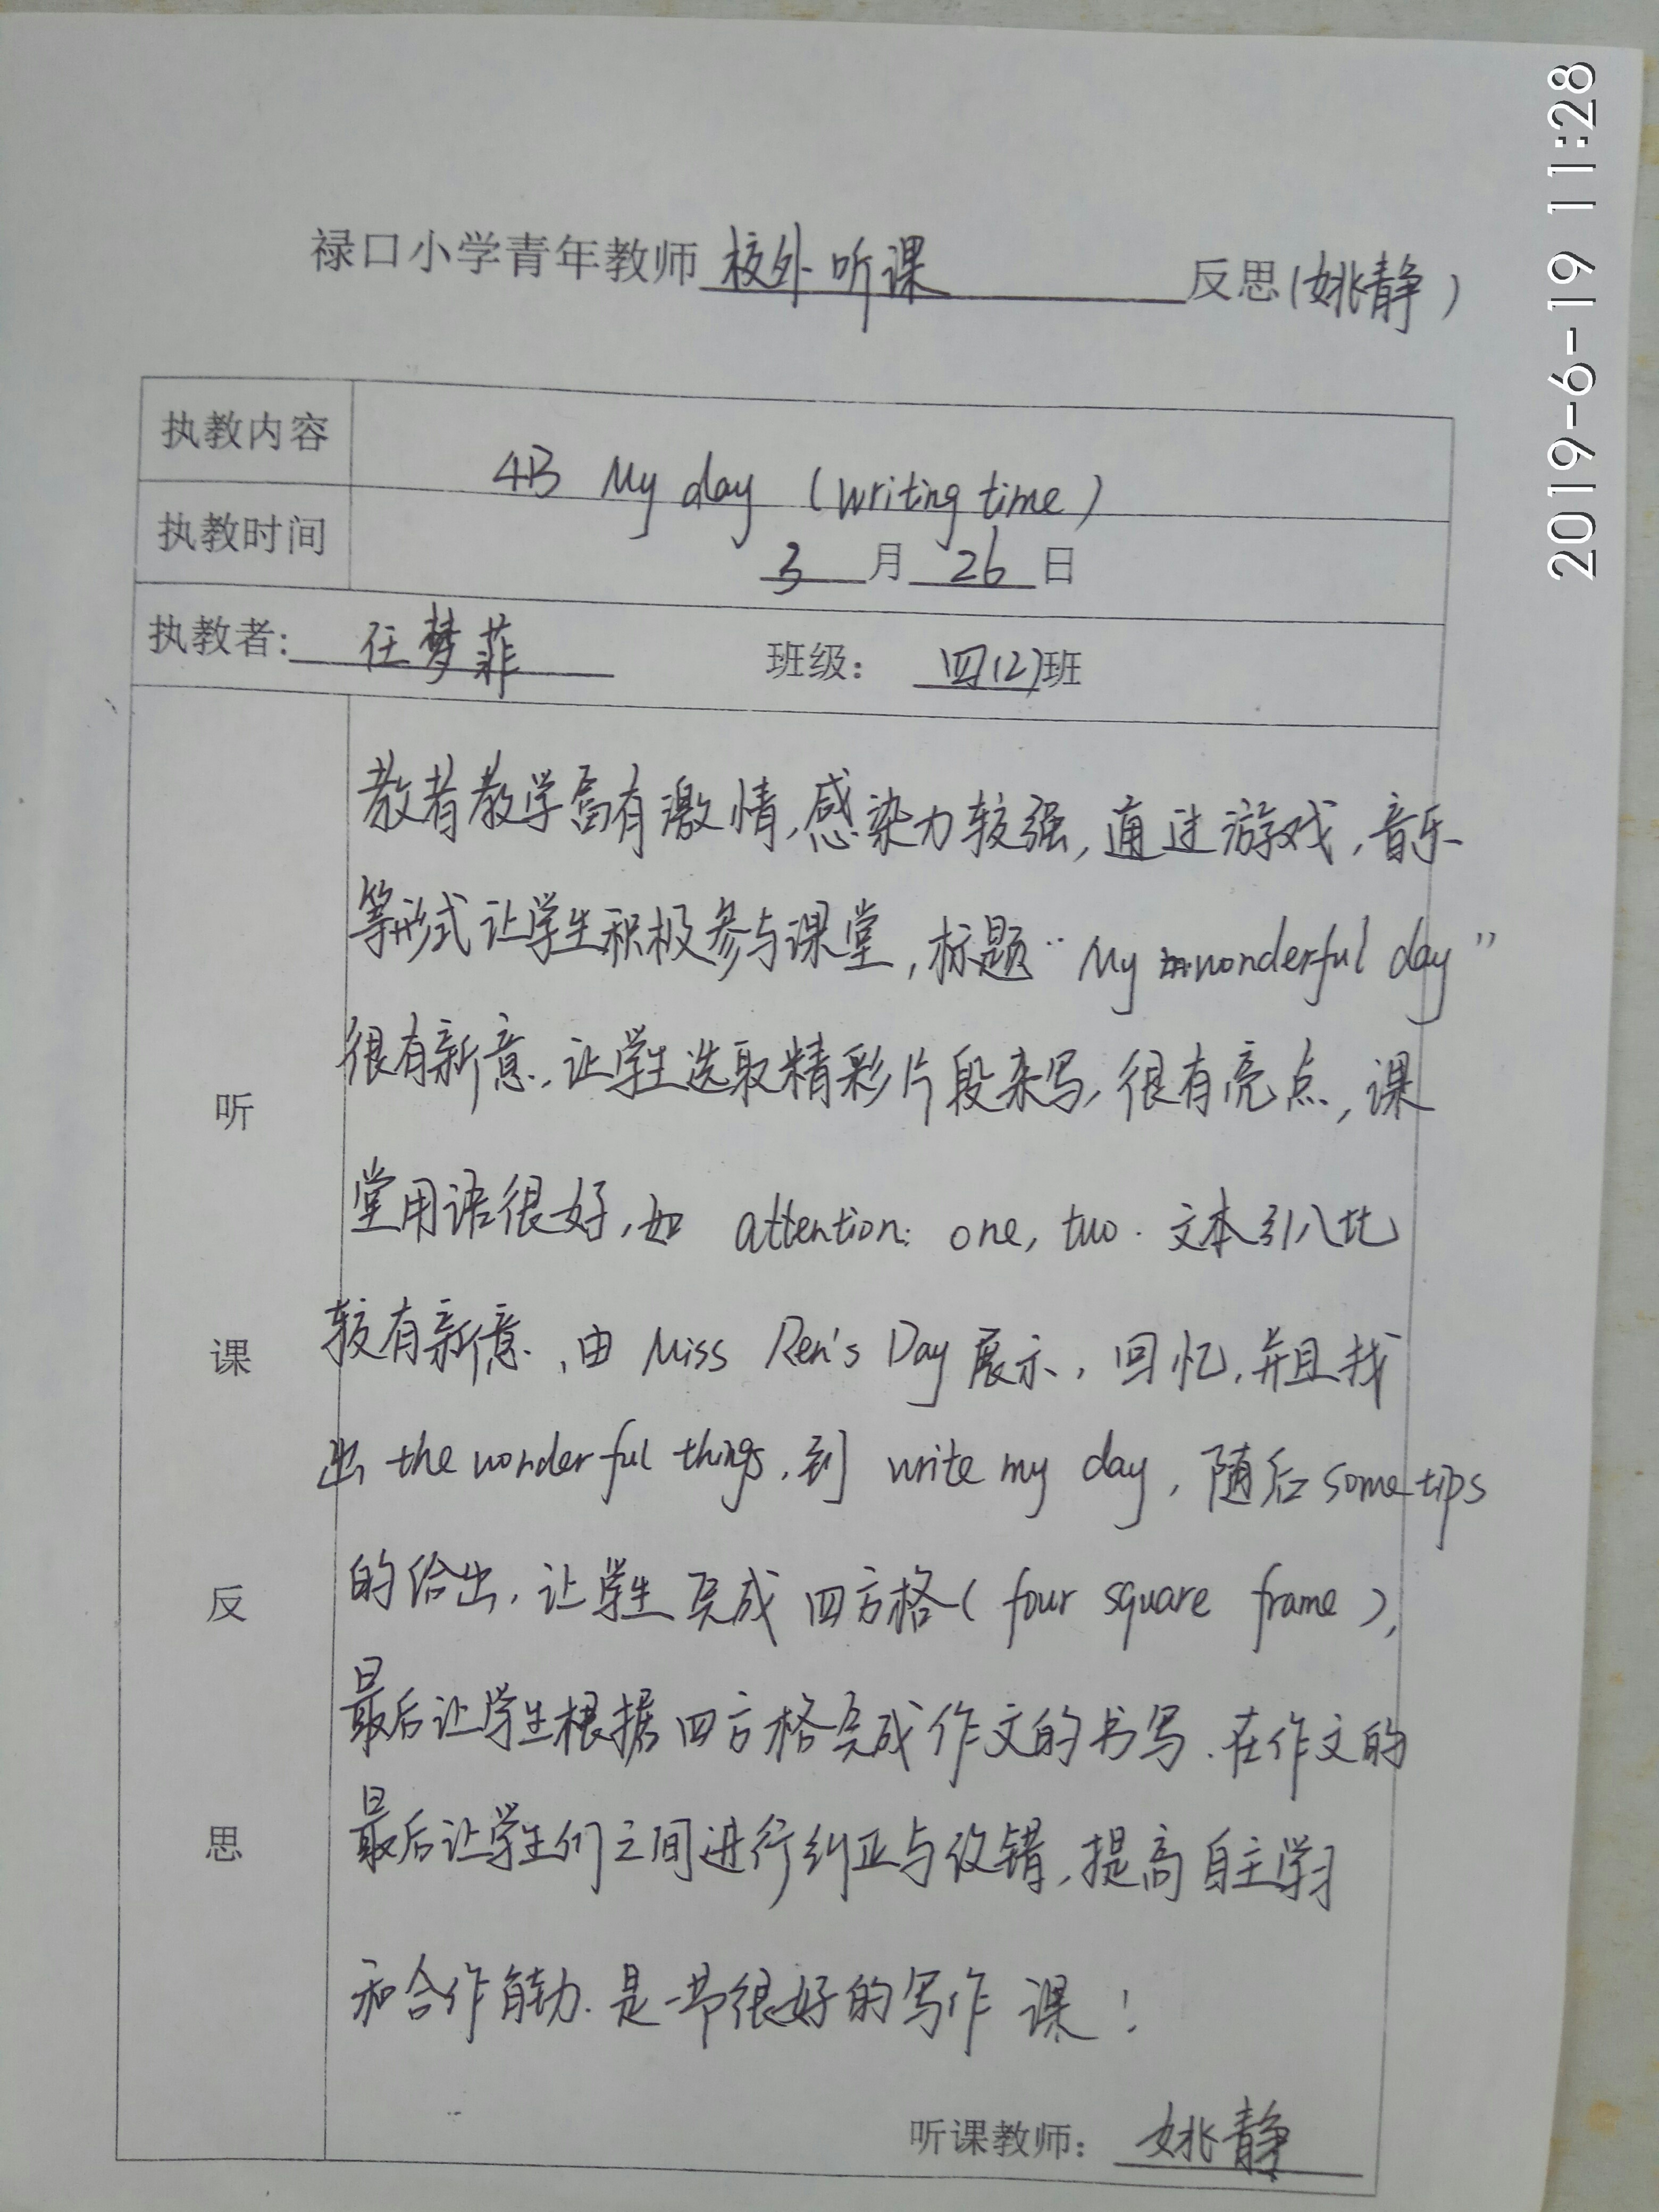 2019-6-19 11:28
禄口小学青年教师 校外听课 反思(姚静)
执教内容 4B My day (writing time)
执教时间 3月26日
执教者: 任梦菲 班级: 四(2)班
听课反思
教者教学富有激情,感染力较强,通过游戏,音乐
等形式让学生积极参与课堂,标题"My wonderful day"
很有新意,让学生选取精彩片段来写,很有亮点,课
堂用语很好,如 attention: one, two. 文本引入比
较有新意,由 Miss Ren's Day 展示,回忆,并且找
出 the wonderful things,到 write my day,随后 some tips
的给出,让学生完成四方格(four square frame),
最后让学生根据四方格完成作文的书写.在作文的
最后让学生们之间进行纠正与改错,提高自主学习
和合作能力.是一节很好的写作课!
听课教师: 姚静